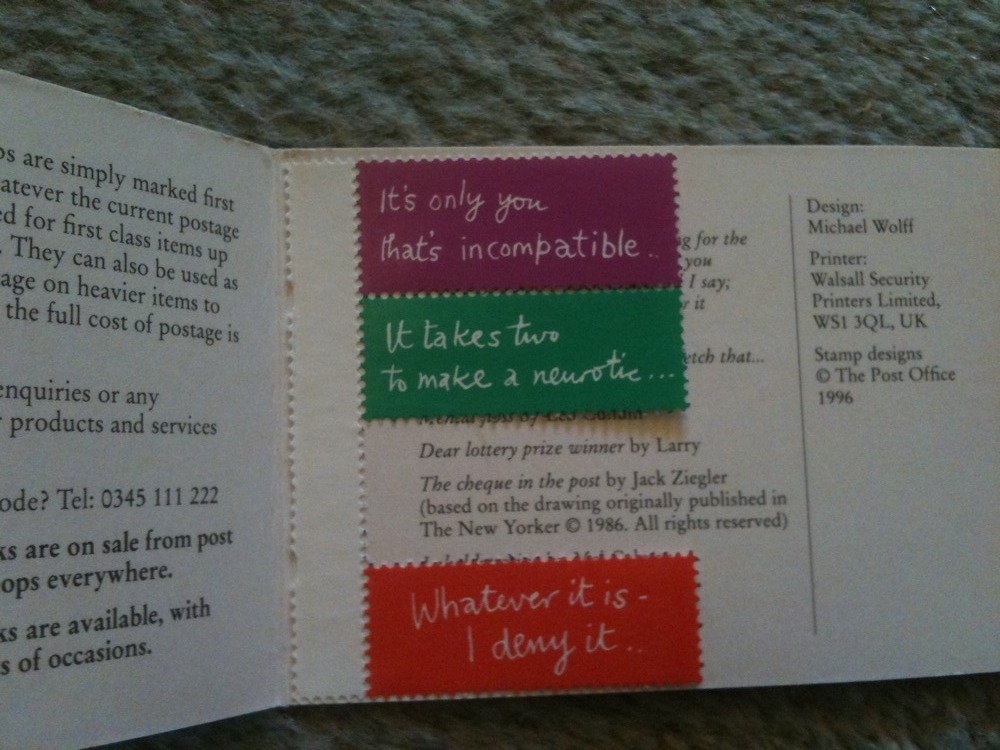 are simply marked first
the current postage
for first class items up
They can also be used as
on heavier items to
the full cost of postage is
enquiries or any
products and services
Tel: 0345 111 222
are on sale from post
everywhere.
are available, with
of occasions.
It's only you
that's incompatible..
It takes two
to make a neurotic...
for the
you
I say;
it
that...
Dear lottery prize winner by Larry
The cheque in the post by Jack Ziegler
(based on the drawing originally published in
The New Yorker © 1986. All rights reserved)
Whatever it is -
I deny it..
Design:
Michael Wolff
Printer:
Walsall Security
Printers Limited,
WS1 3QL, UK
Stamp designs
© The Post Office
1996